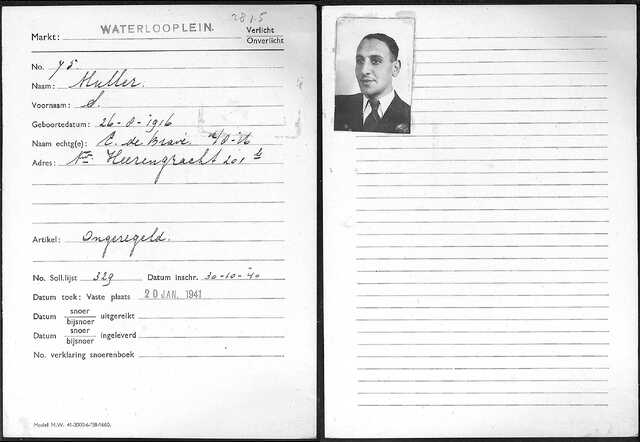 2815
Markt: WATERLOOPLEIN. Verlicht
Onverlicht
No. 75.
Naam: Muller.
Voornaam:
Geboortedatum: 26-8-1916
Naam echtg(e): C. de Bravi
Adres: Heerengracht 201
Artikel: Ongeregeld.
No. Soll.lijst 329 Datum inschr. 30-10-40
Datum toek: Vaste plaats 20 JAN. 1941
Datum snoer
bijsnoer uitgereikt
Datum snoer
bijsnoer ingeleverd
No. verklaring snoerenboek